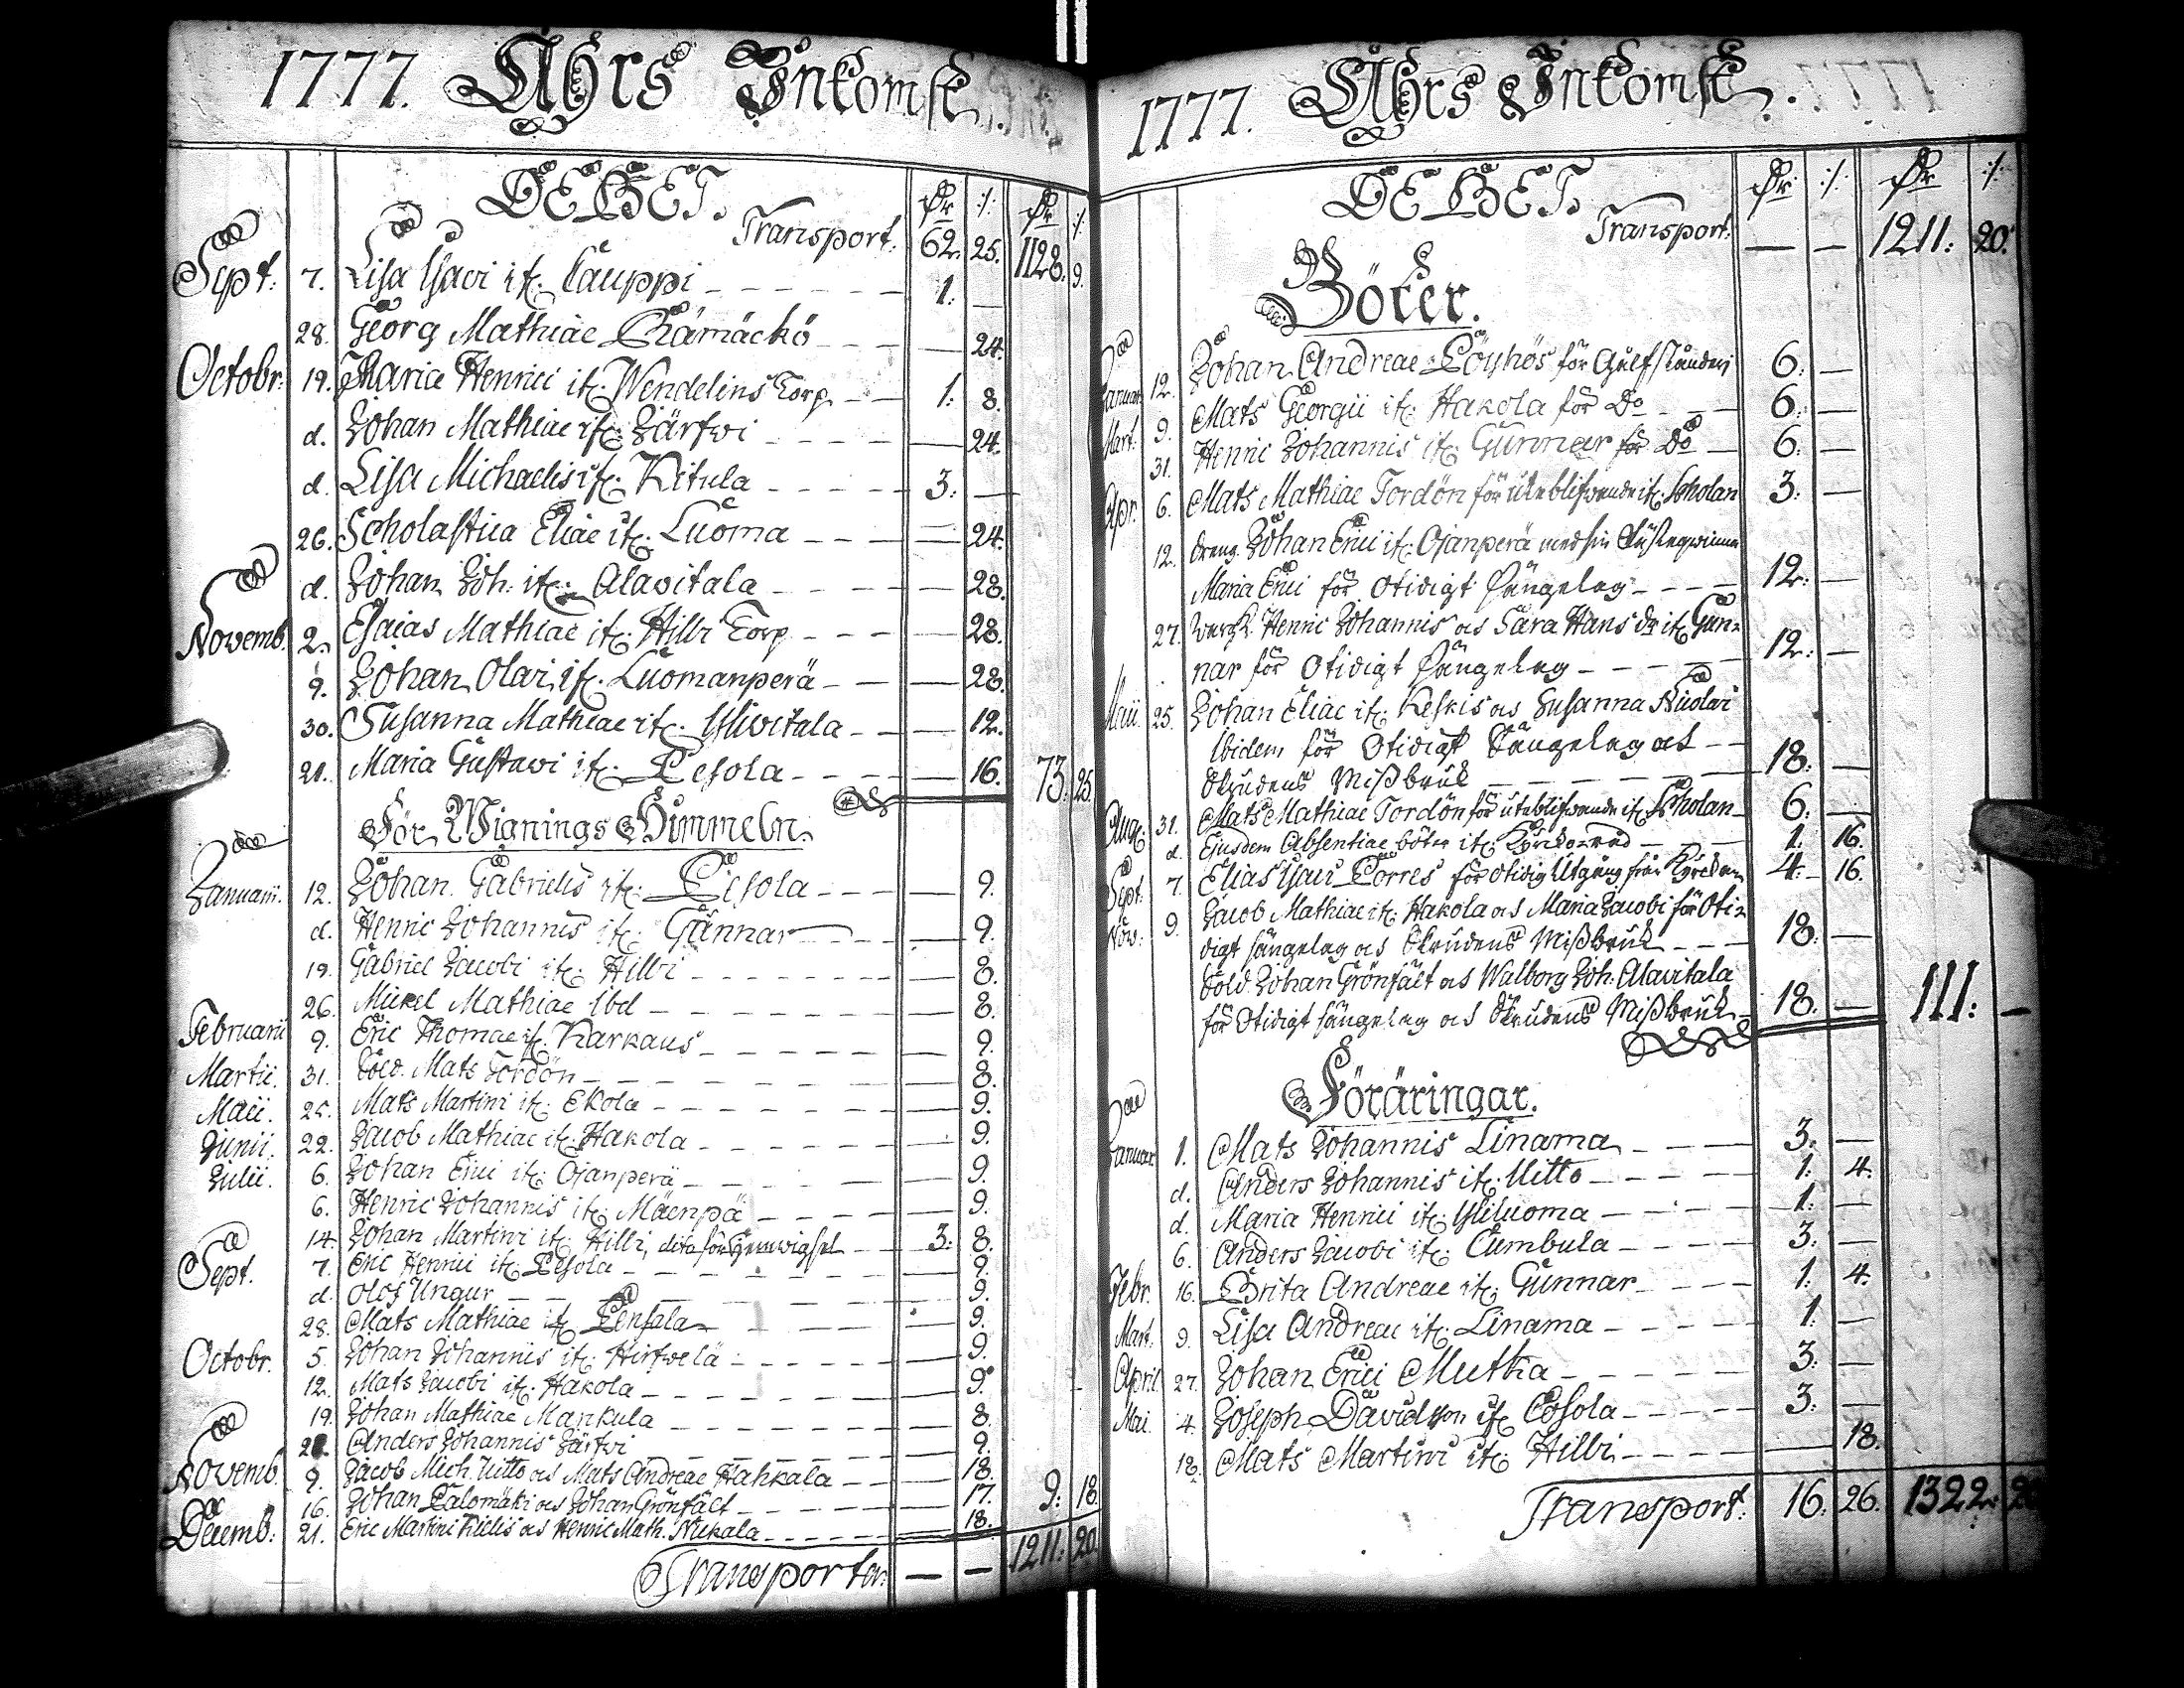 1777. Åhrs Inkomst.
DEBET. Dr :/: Dr :/:
Transport. 62. 25. 1128. 9.
Sept: 7. Lisa Esavi if. Cauppi 1: —
28. Georg Mathiae Rämäckö — 24.
Octobr: 19. Maria Henrici if. Wendelins Torp 1: 8.
d. Johan Mathiae if. Järfvi — 24.
d. Lisa Michaelis if. Kitula 3: —
26. Scholastica Eliae if. Luoma — 24.
d. Johan Joh: if. Alavitala — 28.
Novemb. 2. Esaias Mathiae if. Hilbi Torp — 28.
9. Johan Olai if. Luomanperä — 28.
30. Susanna Mathiae if. Ylivitala — 12.
21. Maria Gustavi if. Pesola — 16. 73: 25.
För Wignings Himmeln.
Januarii. 12. Johan Gabrielis if. Pesola — 9.
d. Henric Johannis if. Gunnar — 9.
19. Gabriel Jacobi if. Hilbi — 8.
26. Mickel Mathiae Ibd — 8.
Februarii 9. Eric Thomae if. Karkaus — 9.
Martii. 31. Sold. Mats Tordön — 8.
Maii. 25. Mats Martini if. Ekola — 9.
Junii. 22. Jacob Mathiae if. Hakola — 9.
Julii. 6. Johan Erici if. Ojanperä — 9.
6. Henric Johannis if. Mäenpä — 9.
14. Johan Martini if. Hilbi, dito för Hemvigsel 3: 8.
Sept. 7. Eric Henrici if. Pesola — 9.
d. Olof Ungur — 9.
28. Mats Mathiae if. Pensala — 9.
Octobr. 5. Johan Johannis if. Hirfvelä — 9.
12. Mats Jacobi if. Hakola — 9.
19. Johan Mathiae Mankula — 8.
Anders Johannis Järfvi — 9.
Novemb. 9. Jacob Mich. Uitto och Mats Andreae Hahkala — 18.
16. Johan Palomäki och Johan Grönfält — 17. 9: 18.
Decemb: 21. Eric Martini Kielis och Henric Math. Nickala — 18.
Transporter: — — 1211: 20.
1777. Åhrs Inkomst.
DEBET. Dr :/: Dr :/:
Transport: — — 1211: 20.
Böter.
Januar. 12. Johan Andreae Löyhös för Gulfståndan 6: —
Mart. 9. Mats Georgii if. Hakola för Do 6: —
31. Henric Johannis if. Gunnar för Do 6: —
Apr. 6. Mats Mathiae Tordön för uteblifvande if. Scholan 3: —
12. dreng. Johan Erici if. Ojanperä med sin Fästeqvinna
Maria Erici för Otidigt Sängelag 12: —
27. Henric Johannis och Sara Hans dr if. Gun-
nar för Otidigt Sängelag 12: —
Maii. 25. Johan Eliae if. Keskis och Susanna Nicolai
Ibidem för Otidigt Sängelag och
Skrudens Missbruk 18: —
Aug: 31. Mats Mathiae Tordön för uteblifvande if. Scholan 6: —
d. Ejusdem Absentiae böter if. Kyrko-råd 1: 16.
Sept. 7. Elias Esai Porres för Otidig Utgång från Kyrckan 4: 16.
Nov: 9. Jacob Mathiae if. Hakola och Maria Jacobi för Oti-
digt sängelag och Skrudens Missbruk 18: —
Sold. Johan Grönfält och Walborg Joh. Alavitala
för Otidigt sängelag och Skrudens Missbruk 18: — 111: —
Föräringar.
Januar. 1. Mats Johannis Linama 3: —
d. Anders Johannis if. Uitto 1: 4.
d. Maria Henrici if. Yliluoma 1: —
6. Anders Jacobi if. Cumbula 3: —
Febr. 16. Brita Andreae if. Gunnar 1: 4.
Mart. 9. Lisa Andreae if. Linama 1: —
April. 27. Johan Erici Mutka 3: —
Mai. 4. Joseph Davidson if. Cosola 3: —
18. Mats Martini if. Hilbi — 18.
Transport: 16. 26. 1322: 20